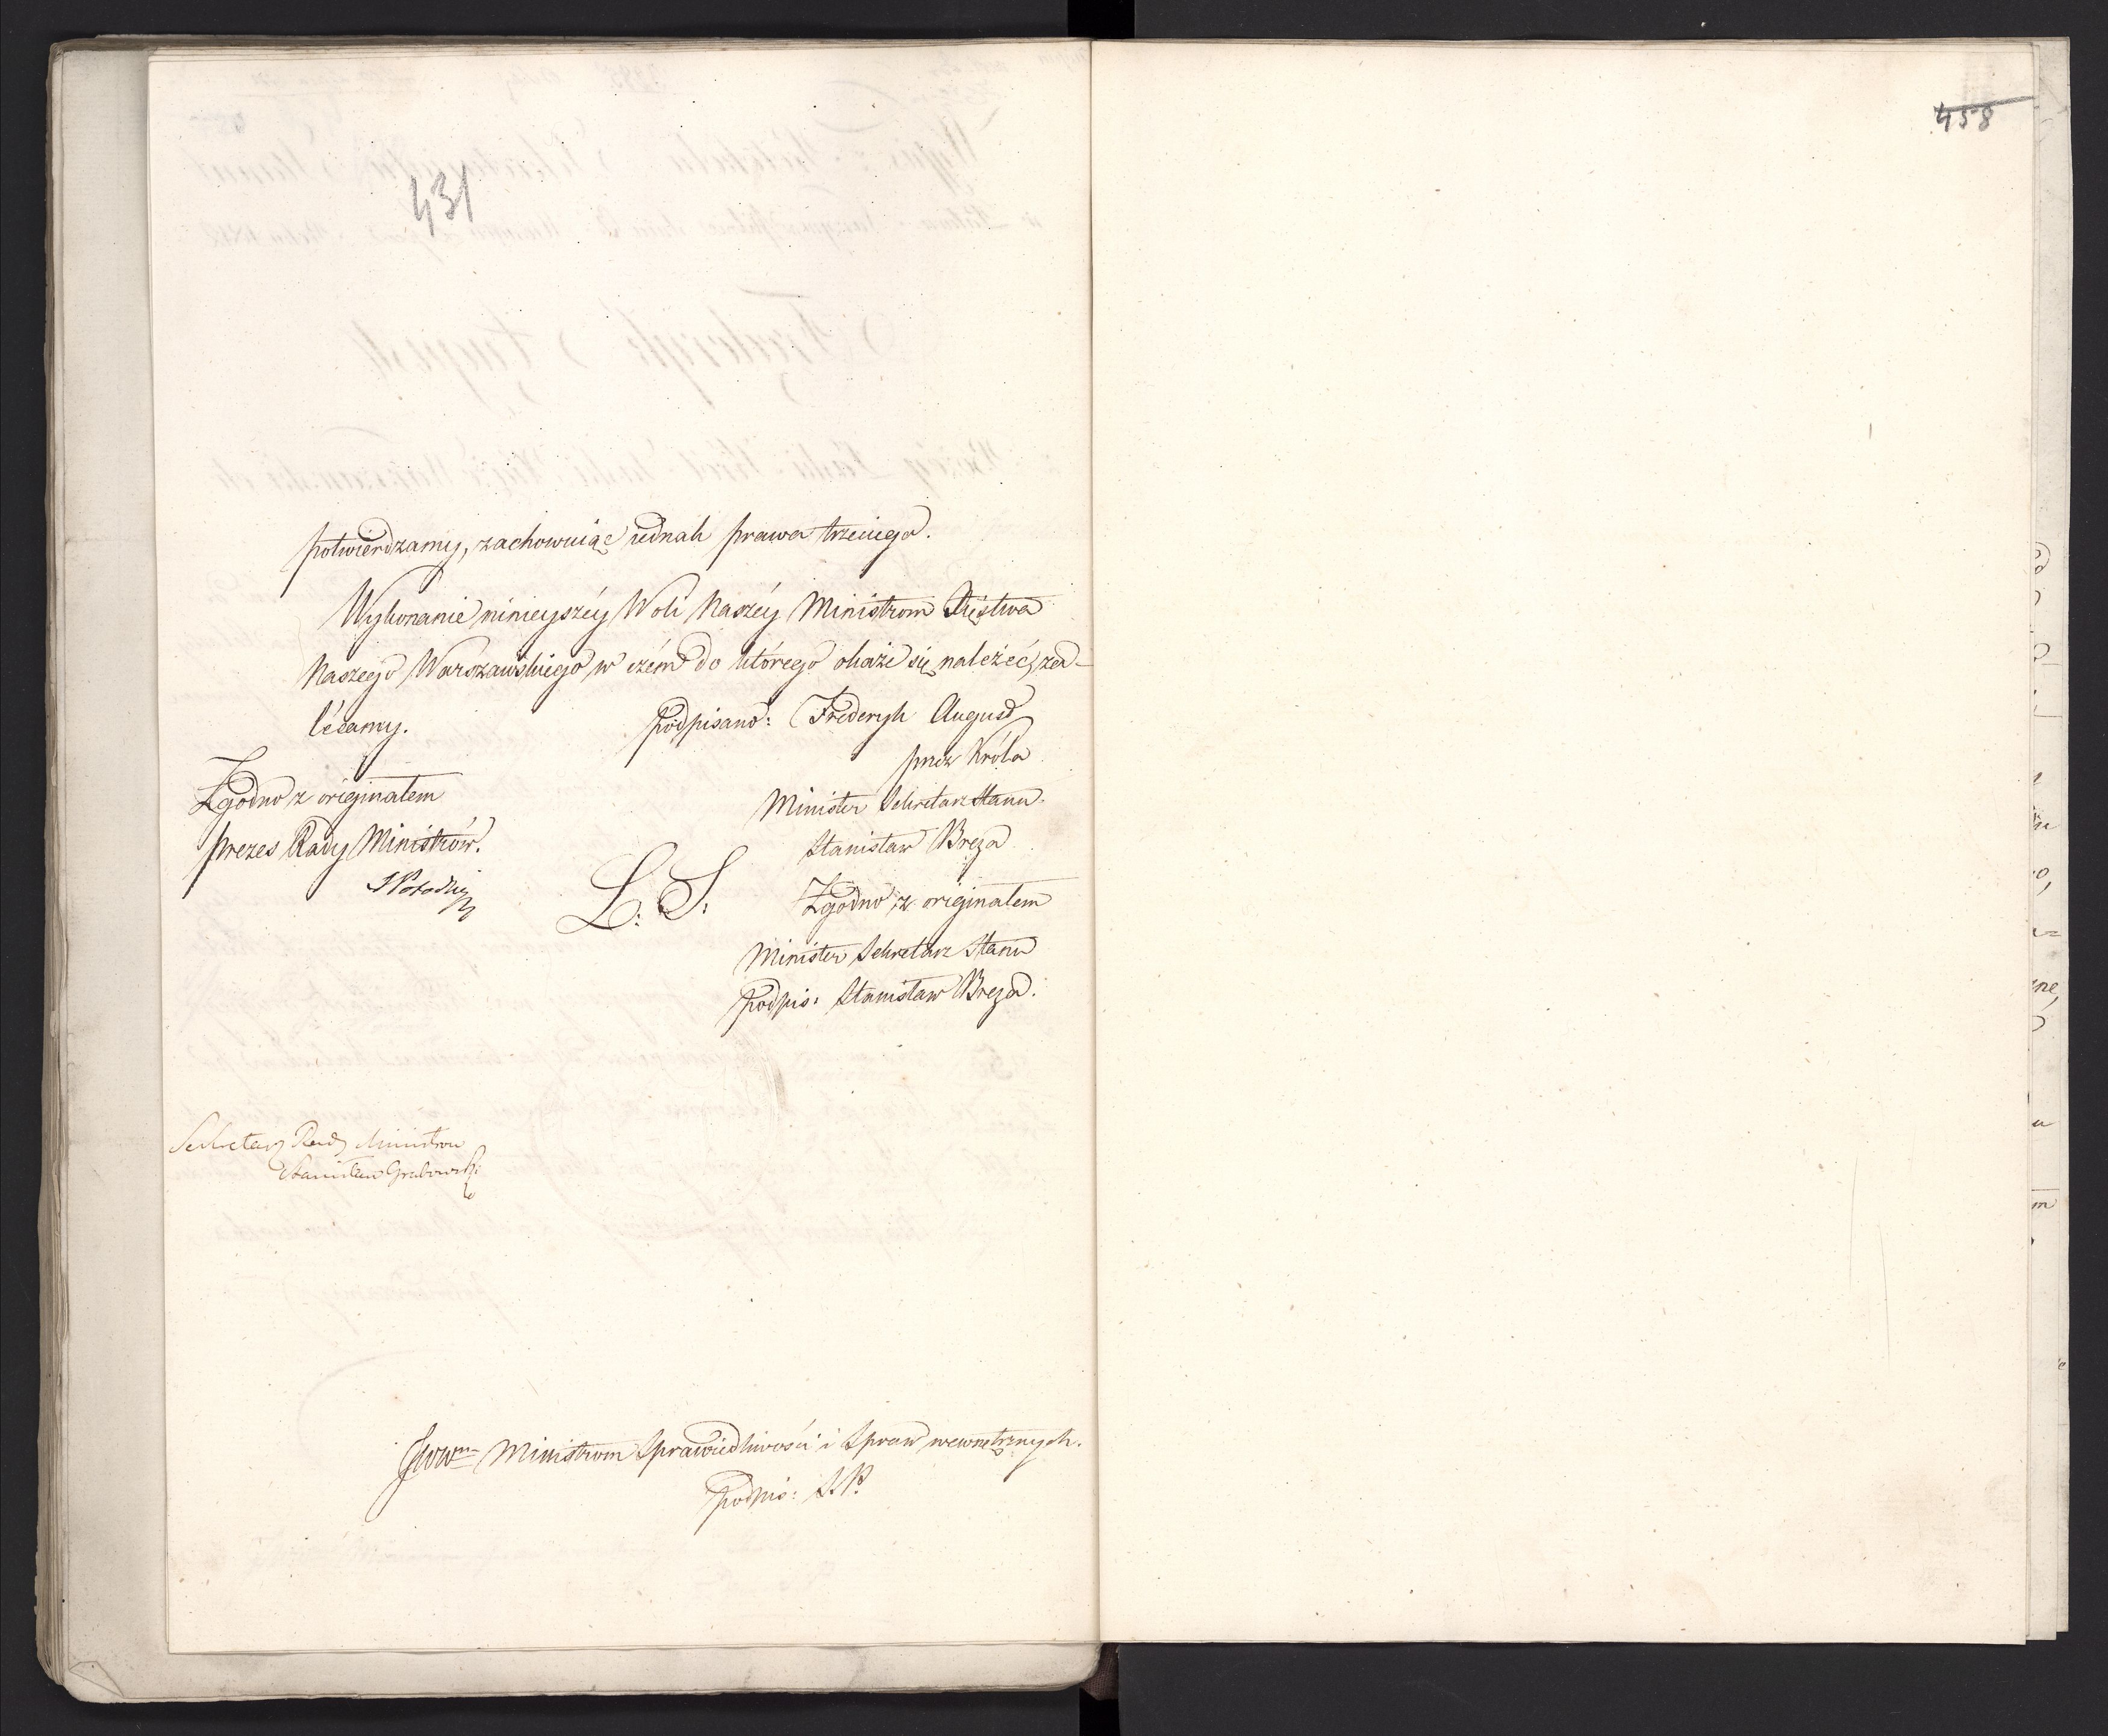 431
458
potwierdzamy, zachowuiąc iednak prawa trzeciego.
Wykonanie ninieyszéy Woli Naszéy Ministrom Xięstwa
Naszego Warszawskiego w czém do którego okaże się należeć, za-
lécamy.
podpisano: Frederyk August
przez Króla
Minister Sekretarz Stanu.
Stanisław Breza
Zgodno z originałem
prezes Rady Ministrów.
L: S:
Zgodno z originałem
Minister Sekretarz Stanu
podpis: Stanisław Breza.
Sekretarz Rady Ministrow
Stanisław Grabowski
JWWm Ministrom Sprawiedliwości i Spraw wewnętrznych.
podpis: